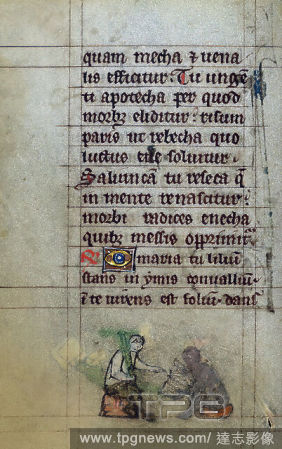 quam mecha ⁊ uena
lis efficitur: Tu ungē
ti apotecha per quod
morbꝫ eliditur: risum
paris ut rebecha quo
luctus ille soluitur.
Saliuncā tu reseca q̄
in mente renascitur:
morbi radices enecha
quibꝫ messis opprimit᷑
O maria tu liliū
stans in ymis conualliū.
ī te uirens est foliū. dans
TPG
www.tpgnews.com/ 達志影像